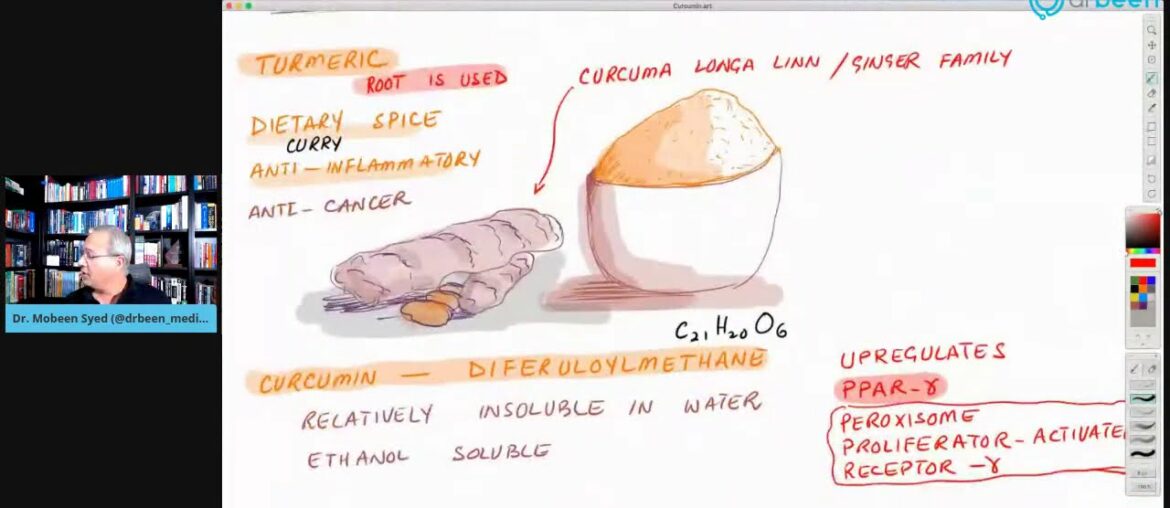 Curcumin.art
drbeen
TURMERIC
ROOT IS USED
CURCUMA LONGA LINN / GINGER FAMILY
DIETARY SPICE
CURRY
ANTI-INFLAMMATORY
ANTI-CANCER
Dr. Mobeen Syed (@drbeen_medi...
C21H20O6
CURCUMIN — DIFERULOYLMETHANE
RELATIVELY INSOLUBLE IN WATER
ETHANOL SOLUBLE
UPREGULATES
PPAR-γ
PEROXISOME
PROLIFERATOR-ACTIVATE
RECEPTOR-γ